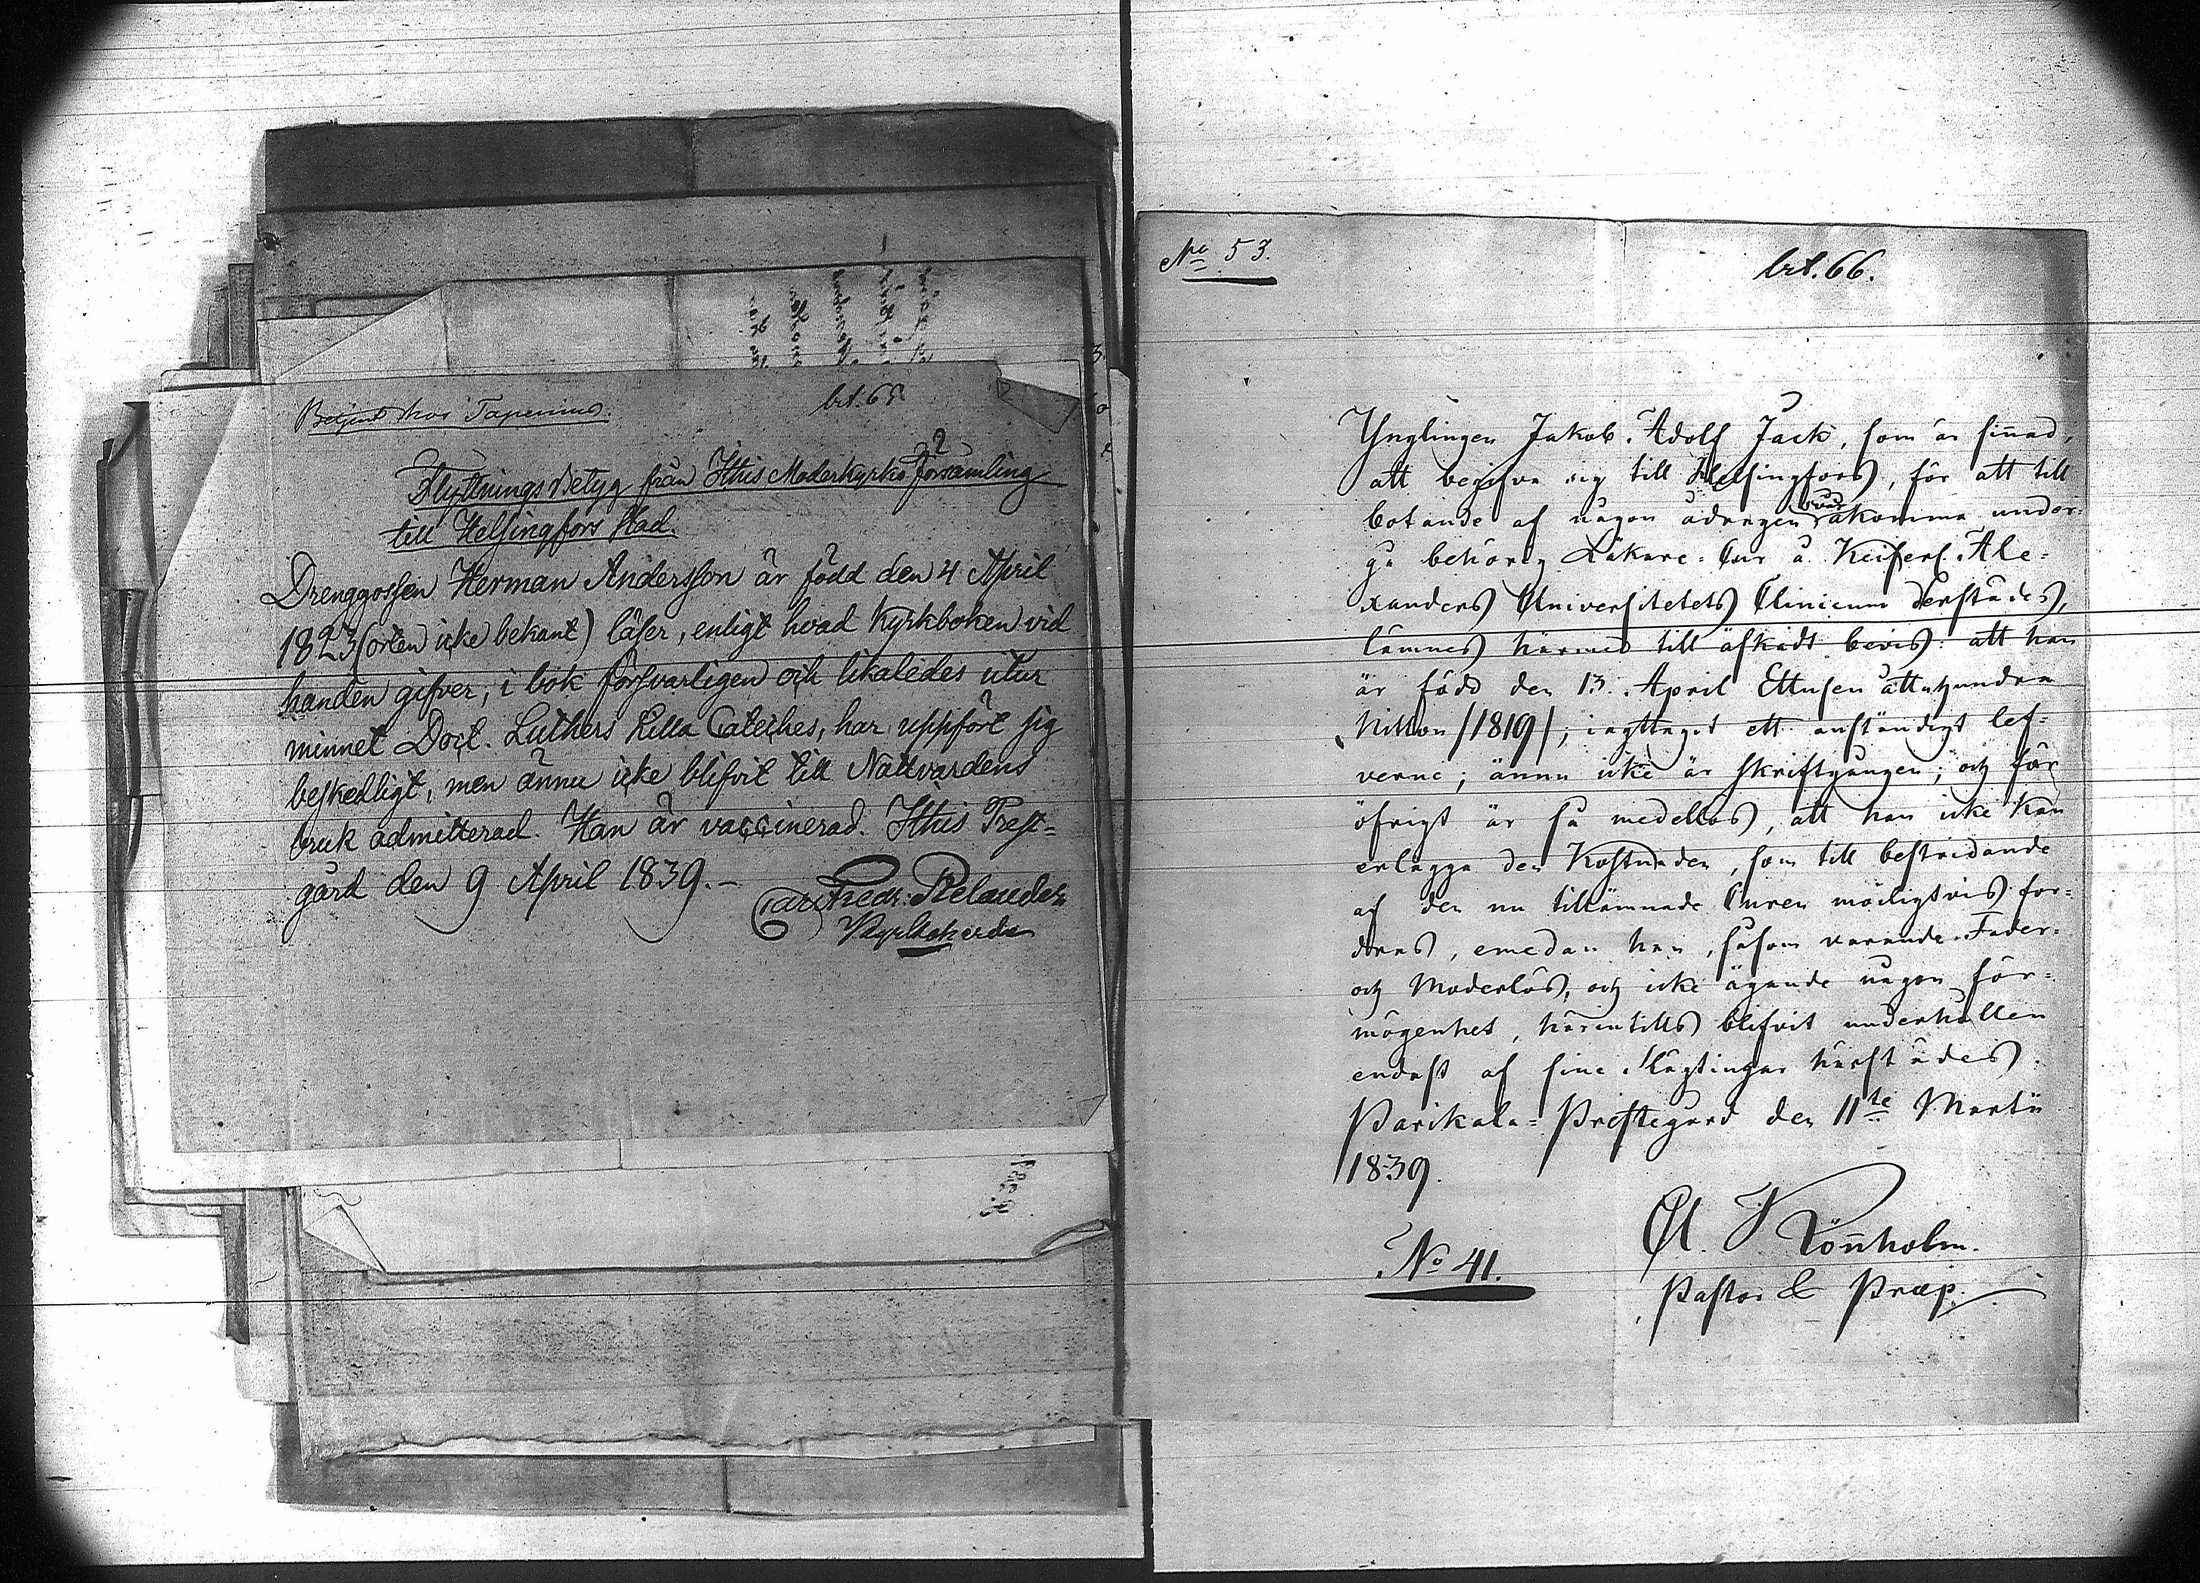 Betjent hos Tapenius.
brt. 65.
Flyttnings Betyg från Ithis Moderkyrko Församling
till Helsingfors Stad.
Drenggossen Herman Andersson är född den 4 April
1823 (orten icke bekant) läser, enligt hvad Kyrkboken vid
handen gifver, i bok försvarligen och likaledes utur
minnet Doct. Luthers Lilla Cateches, har uppfört sig
beskedligt, men ännu icke blifvit till Nattvardens
bruk admitterad. Han är vaccinerad. Ithis Prest=
gård den 9 April 1839.–
Carl Fredr. Relander
Kyrkoherde
No 53.
brt. 66.
Ynglingen Jakob Adolf Jack, som är sinnad,
att begifva sig till Helsingfors, för att till
botande af någon ådragen svår åkomma under=
gå behörig Läkare=Cur å Keiserl. Ale=
xanders Universitetets Clinicum derstädes,
lämnes härmed till äskadt bevis: att han
är född den 13 April Ettusen åttahundra
Nitton /1819/; iagttagit ett anständigt lef=
verne; ännu icke är skriftgången; och för
öfrigt är så medellös, att han icke kan
erlägga den Kostnaden, som till bestridande
af den nu tillämnade Curen möiligtvis for=
dras, emedan han, såsom varande Fader=
och Moderlös, och icke ägande någon för=
mögenhet, härintills blifvit underhållen
endast af sine Slägtingar härstädes.
Parikala=Prestegård den 11te Martii
1839.
Ol. Rönnholm.
Pastor & Præp.
No 41.